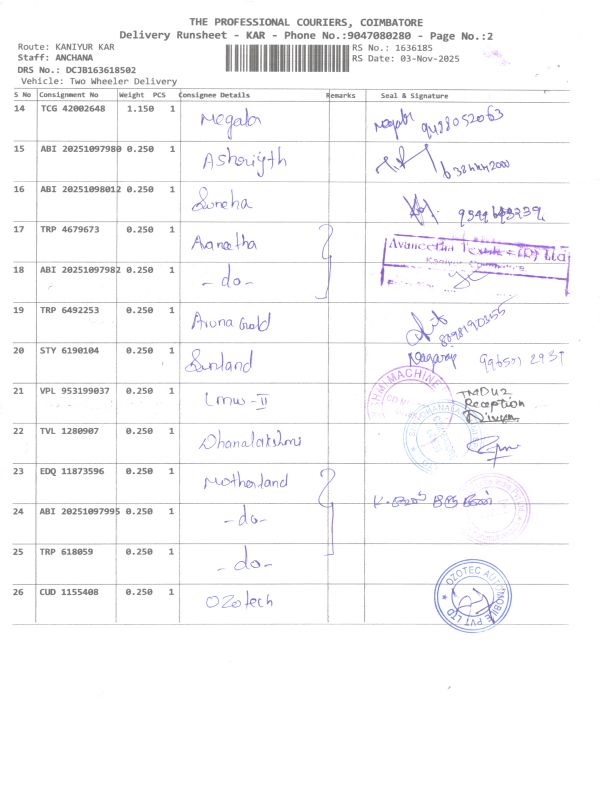 THE PROFESSIONAL COURIERS, COIMBATORE
Delivery Runsheet - KAR - Phone No.:9047080280 - Page No.:2
Route: KANIYUR KAR RS No.: 1636185
Staff: ANCHANA RS Date: 03-Nov-2025
DRS No.: DCJB163618502
Vehicle: Two Wheeler Delivery
S No Consignment No Weight PCS Consignee Details Remarks Seal & Signature
14 TCG 42002648 1.150 1 Megala 9488052063
15 ABI 20251097980 0.250 1
16 ABI 20251098012 0.250 1 Sureha
17 TRP 4679673 0.250 1 Avaneetha
18 ABI 20251097982 0.250 1 -do-
19 TRP 6492253 0.250 1 Aruna Gold
20 STY 6190104 0.250 1 Sunland Nagaraj
21 VPL 953199037 0.250 1 Lmw-II MACHINE Reception
22 TVL 1280907 0.250 1 Dhanalakshmi
23 EDQ 11873596 0.250 1 Motherland
24 ABI 20251097995 0.250 1 -do-
25 TRP 618059 0.250 1 -do-
26 CUD 1155408 0.250 1 Ozotech OZOTEC AUTOMOBILE PVT LTD